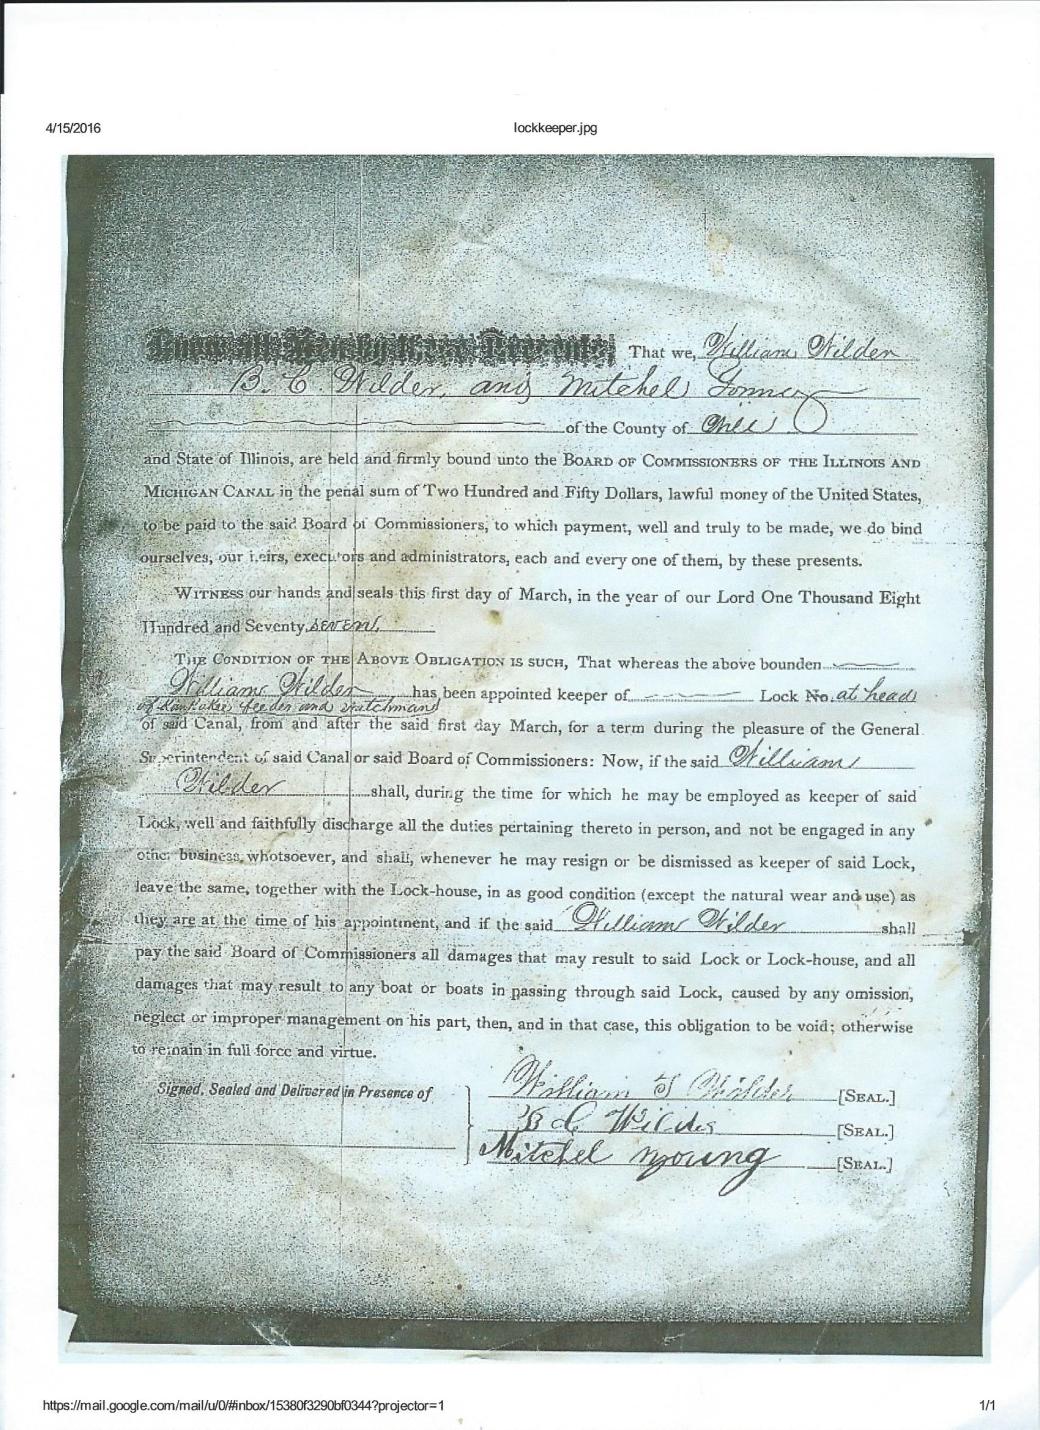 4/15/2016 lockkeeper.jpg
Know all Men by these Presents, That we, William Wilder
B. C Wilder, and Mitchel
of the County of Will
and State of Illinois, are held and firmly bound unto the BOARD OF COMMISSIONERS OF THE ILLINOIS AND
MICHIGAN CANAL in the penal sum of Two Hundred and Fifty Dollars, lawful money of the United States,
to be paid to the said Board of Commissioners, to which payment, well and truly to be made, we do bind
ourselves, our heirs, executors and administrators, each and every one of them, by these presents.
WITNESS our hands and seals this first day of March, in the year of our Lord One Thousand Eight
Hundred and Seventy seven.
THE CONDITION OF THE ABOVE OBLIGATION IS SUCH, That whereas the above bounden
William Wilder has been appointed keeper of Lock No. at head
of Kankakee feeder and watchman
of said Canal, from and after the said first day March, for a term during the pleasure of the General
Superintendent of said Canal or said Board of Commissioners: Now, if the said William
Wilder shall, during the time for which he may be employed as keeper of said
Lock, well and faithfully discharge all the duties pertaining thereto in person, and not be engaged in any
other business whotsoever, and shall, whenever he may resign or be dismissed as keeper of said Lock,
leave the same, together with the Lock-house, in as good condition (except the natural wear and use) as
they are at the time of his appointment, and if the said William Wilder shall
pay the said Board of Commissioners all damages that may result to said Lock or Lock-house, and all
damages that may result to any boat or boats in passing through said Lock, caused by any omission,
neglect or improper management on his part, then, and in that case, this obligation to be void; otherwise
to remain in full force and virtue.
Signed, Sealed and Delivered in Presence of
William Wilder [SEAL.]
B C Wilder [SEAL.]
Mitchel young [SEAL.]
https://mail.google.com/mail/u/0/#inbox/15380f3290bf0344?projector=1 1/1